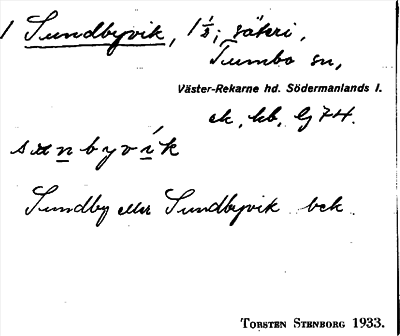 1 Sundbyvik, 1 1/2, säteri,
Tumbo sn,
Väster-Rekarne hd. Södermanlands l.
ek, kb, Gj 74.
Sundby eller Sundbyvik bek.
TORSTEN STENBORG 1933.